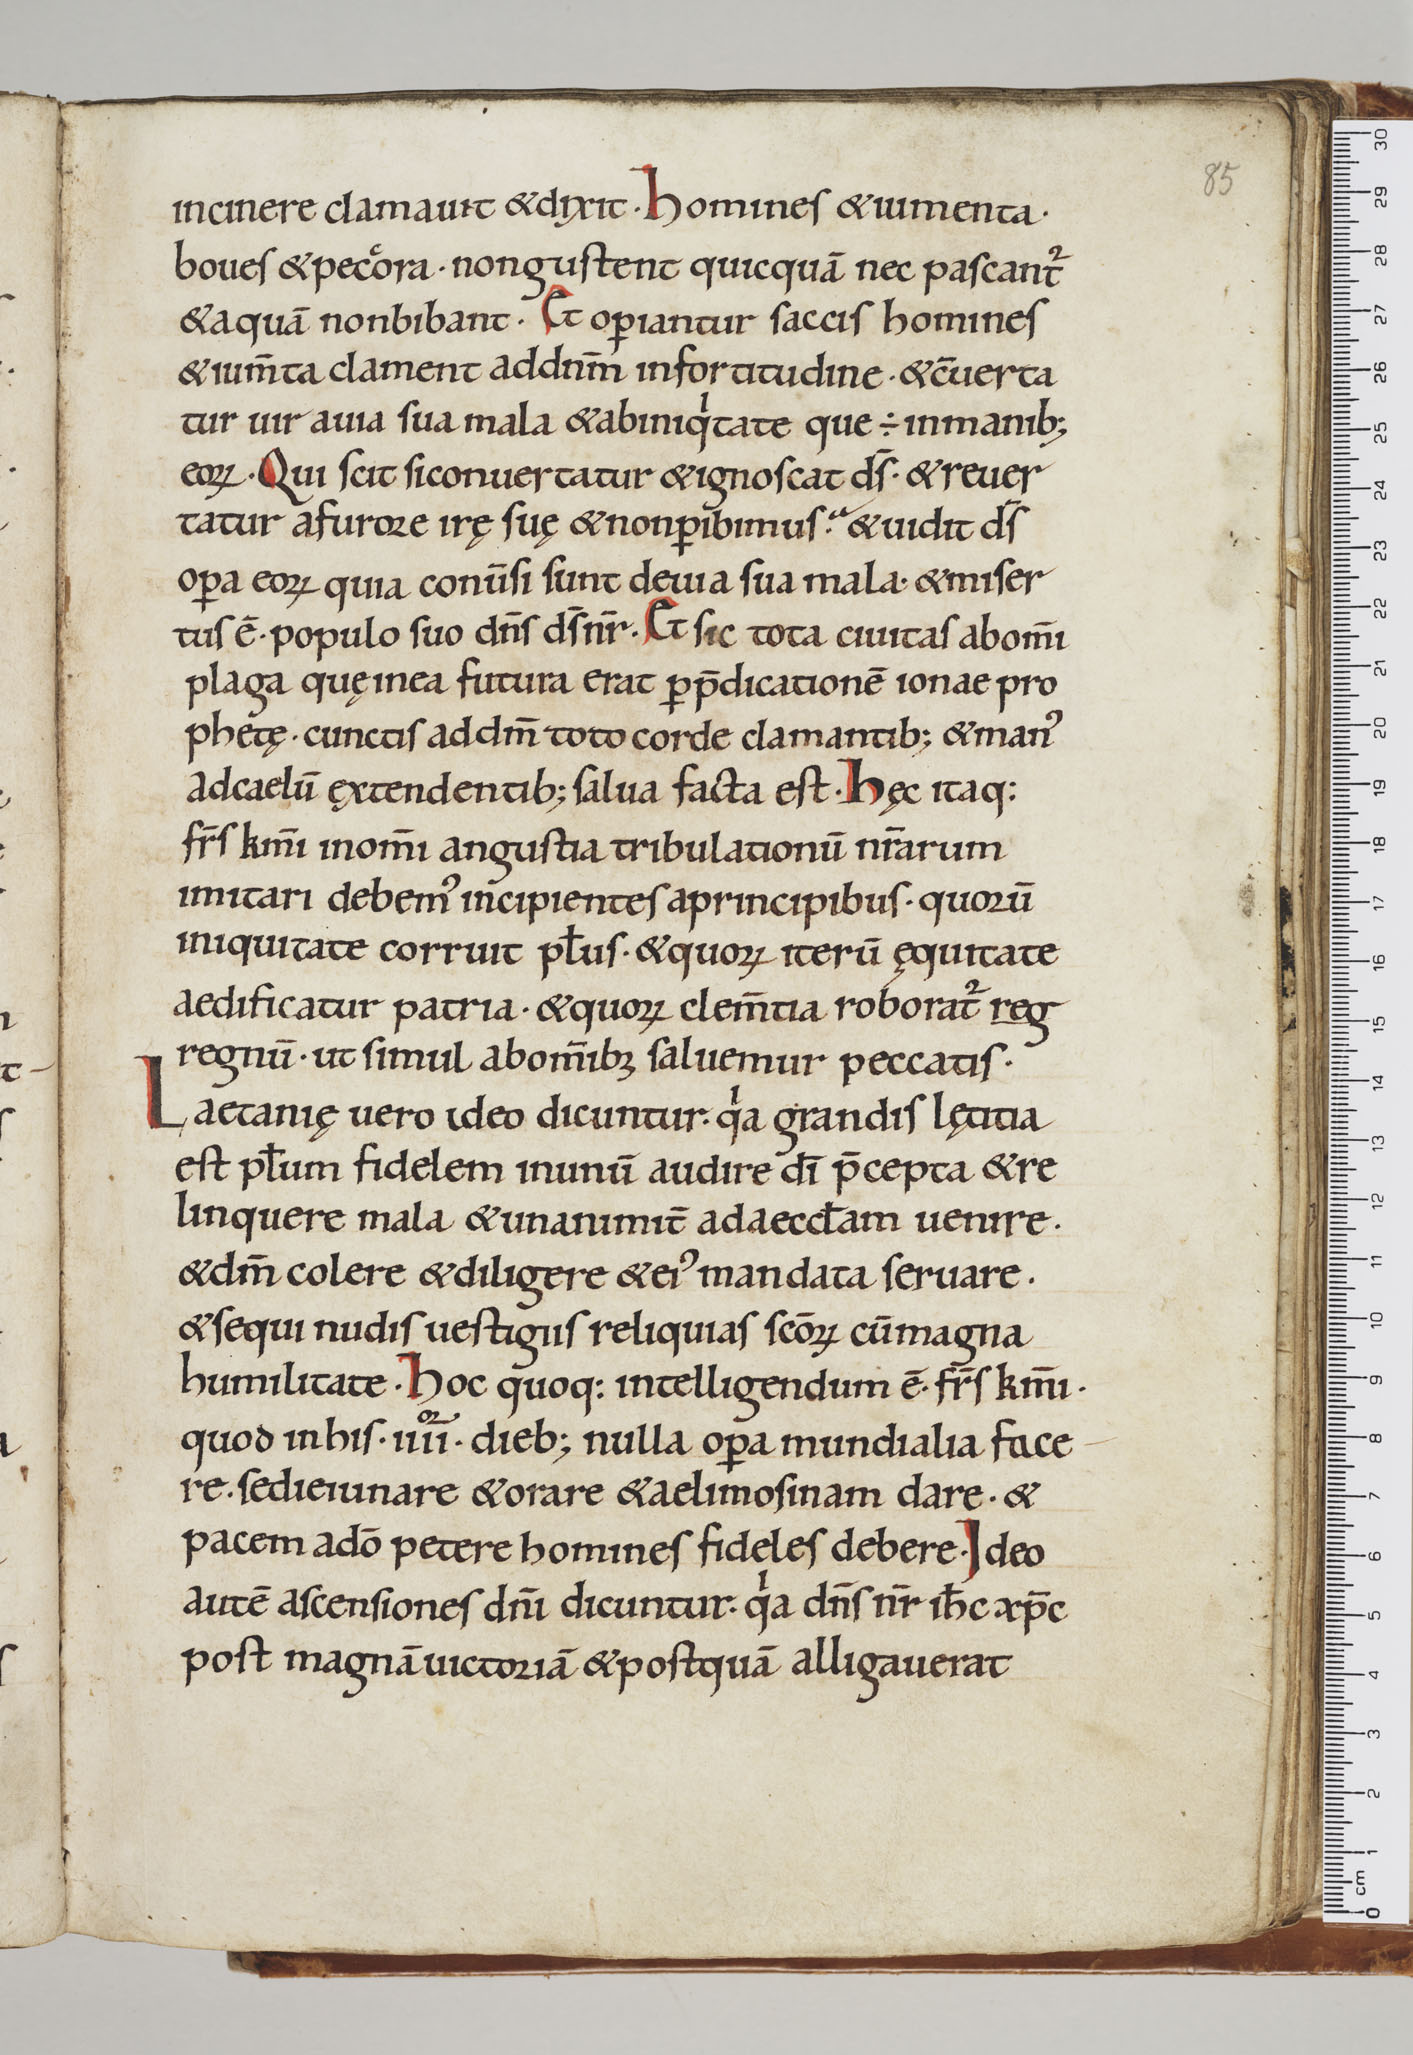 85
incinere clamauit & dixit · Homines & iumenta ·
boues & pecora · non gustent quicquā nec pascant᷑
& aquā non bibant · Et oꝑiantur saccis homines
& ium̄ta clament ad dn̄m in fortitudine · & c̄uerta
tur uir a uia sua mala & ab iniqͥtate que ÷ in manib;
eoꝝ · Qui scit si conuertatur & ignoscat ds̄ · & reuer
tatur a furore irę suę & non ꝑibimus · & uidit ds̄
oꝑa eoꝝ quia conūsi sunt de uia sua mala · & miser
tus ē · populo suo dn̄s ds̄ nr̄ · Et sic tota ciuitas ab om̄i
plaga quę in ea futura erat ꝑ p̄dicationē ionae pro
phetę · cunctis ad dm̄ toto corde clamantib; & manꝰ
ad caelū ęxtendentib; salua facta est · Hęc itaq:
fr̄s km̄i in om̄i angustia tribulationū nr̄arum
imitari debemꝰ incipientes a principibus · quorū
iniquitate corruit pl̄us · & quoꝝ iterū ęquitate
aedificatur patria · & quoꝝ clem̄tia roborat᷑ reg
regnū · ut simul ab om̄ibꝫ saluemur peccatis ·
Laetanię uero ideo dicuntur · qͥa grandis lętitia
est pl̄um fidelem in unū audire dī p̄cepta & re
linquere mala & unanimit̄ ad aeccl̄am uenire ·
& dm̄ colere & diligere & eiꝰ mandata seruare ·
& sequi nudis uestigiis reliquias scōꝝ cū magna
humilitate · Hoc quoq: intelligendum ē · fr̄s km̄i ·
quod in his · iiii᷒ᵒʳ · dieb; nulla oꝑa mundialia face
re · sed ieiunare & orare & aelimosinam dare · &
pacem a dō petere homines fideles debere · Ideo
autē ascensiones dn̄i dicuntur · qͥa dn̄s nr̄ ih̄c xp̄c
post magnā uictoriā & postquā alligauerat
30
29
28
27
26
25
24
23
22
21
20
19
18
17
16
15
14
13
12
11
10
9
8
7
6
5
4
3
2
1
cm
0